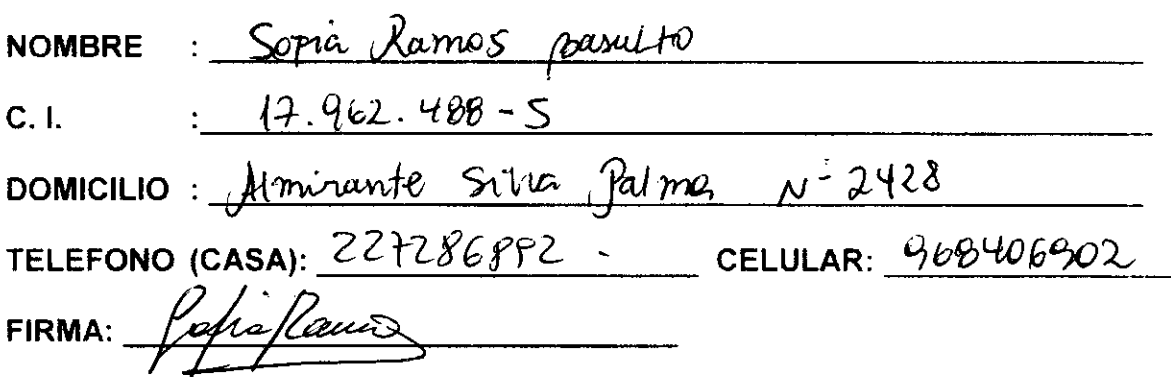 NOMBRE : Sopia Ramos basulto
C. I. : 17.962.488-5
DOMICILIO : Almirante Silva Palma N- 2428
TELEFONO (CASA): 227286892 - CELULAR: 968406902
FIRMA: Sofia Ramos